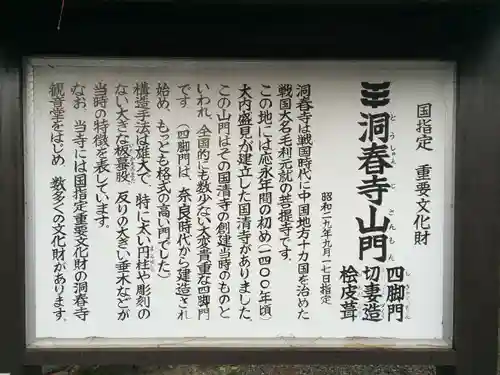 国指定 重要文化財
洞春寺山門
とうしゅんじさんもん
四脚門
しきゃくもん
切妻造
檜皮葺
昭和二九年九月一七日指定
洞春寺は戦国時代に中国地方十カ国を治めた
戦国大名毛利元就の菩提寺です。
この地には応永年間の初め(一四〇〇年頃)
大内盛見が建立した国清寺がありました。
この山門はその国清寺の創建当時のものと
いわれ、全国的にも数少ない大変貴重な四脚門
です。(四脚門は、奈良時代から建造され
始め、もっとも格式の高い門でした)
構造手法は雄大で、特に太い円柱や彫刻の
ない大きな板蟇股、反りの大きい垂木などが
当時の特徴を表しています。
なお、当寺には国指定重要文化財の洞春寺
観音堂をはじめ、数多くの文化財があります。